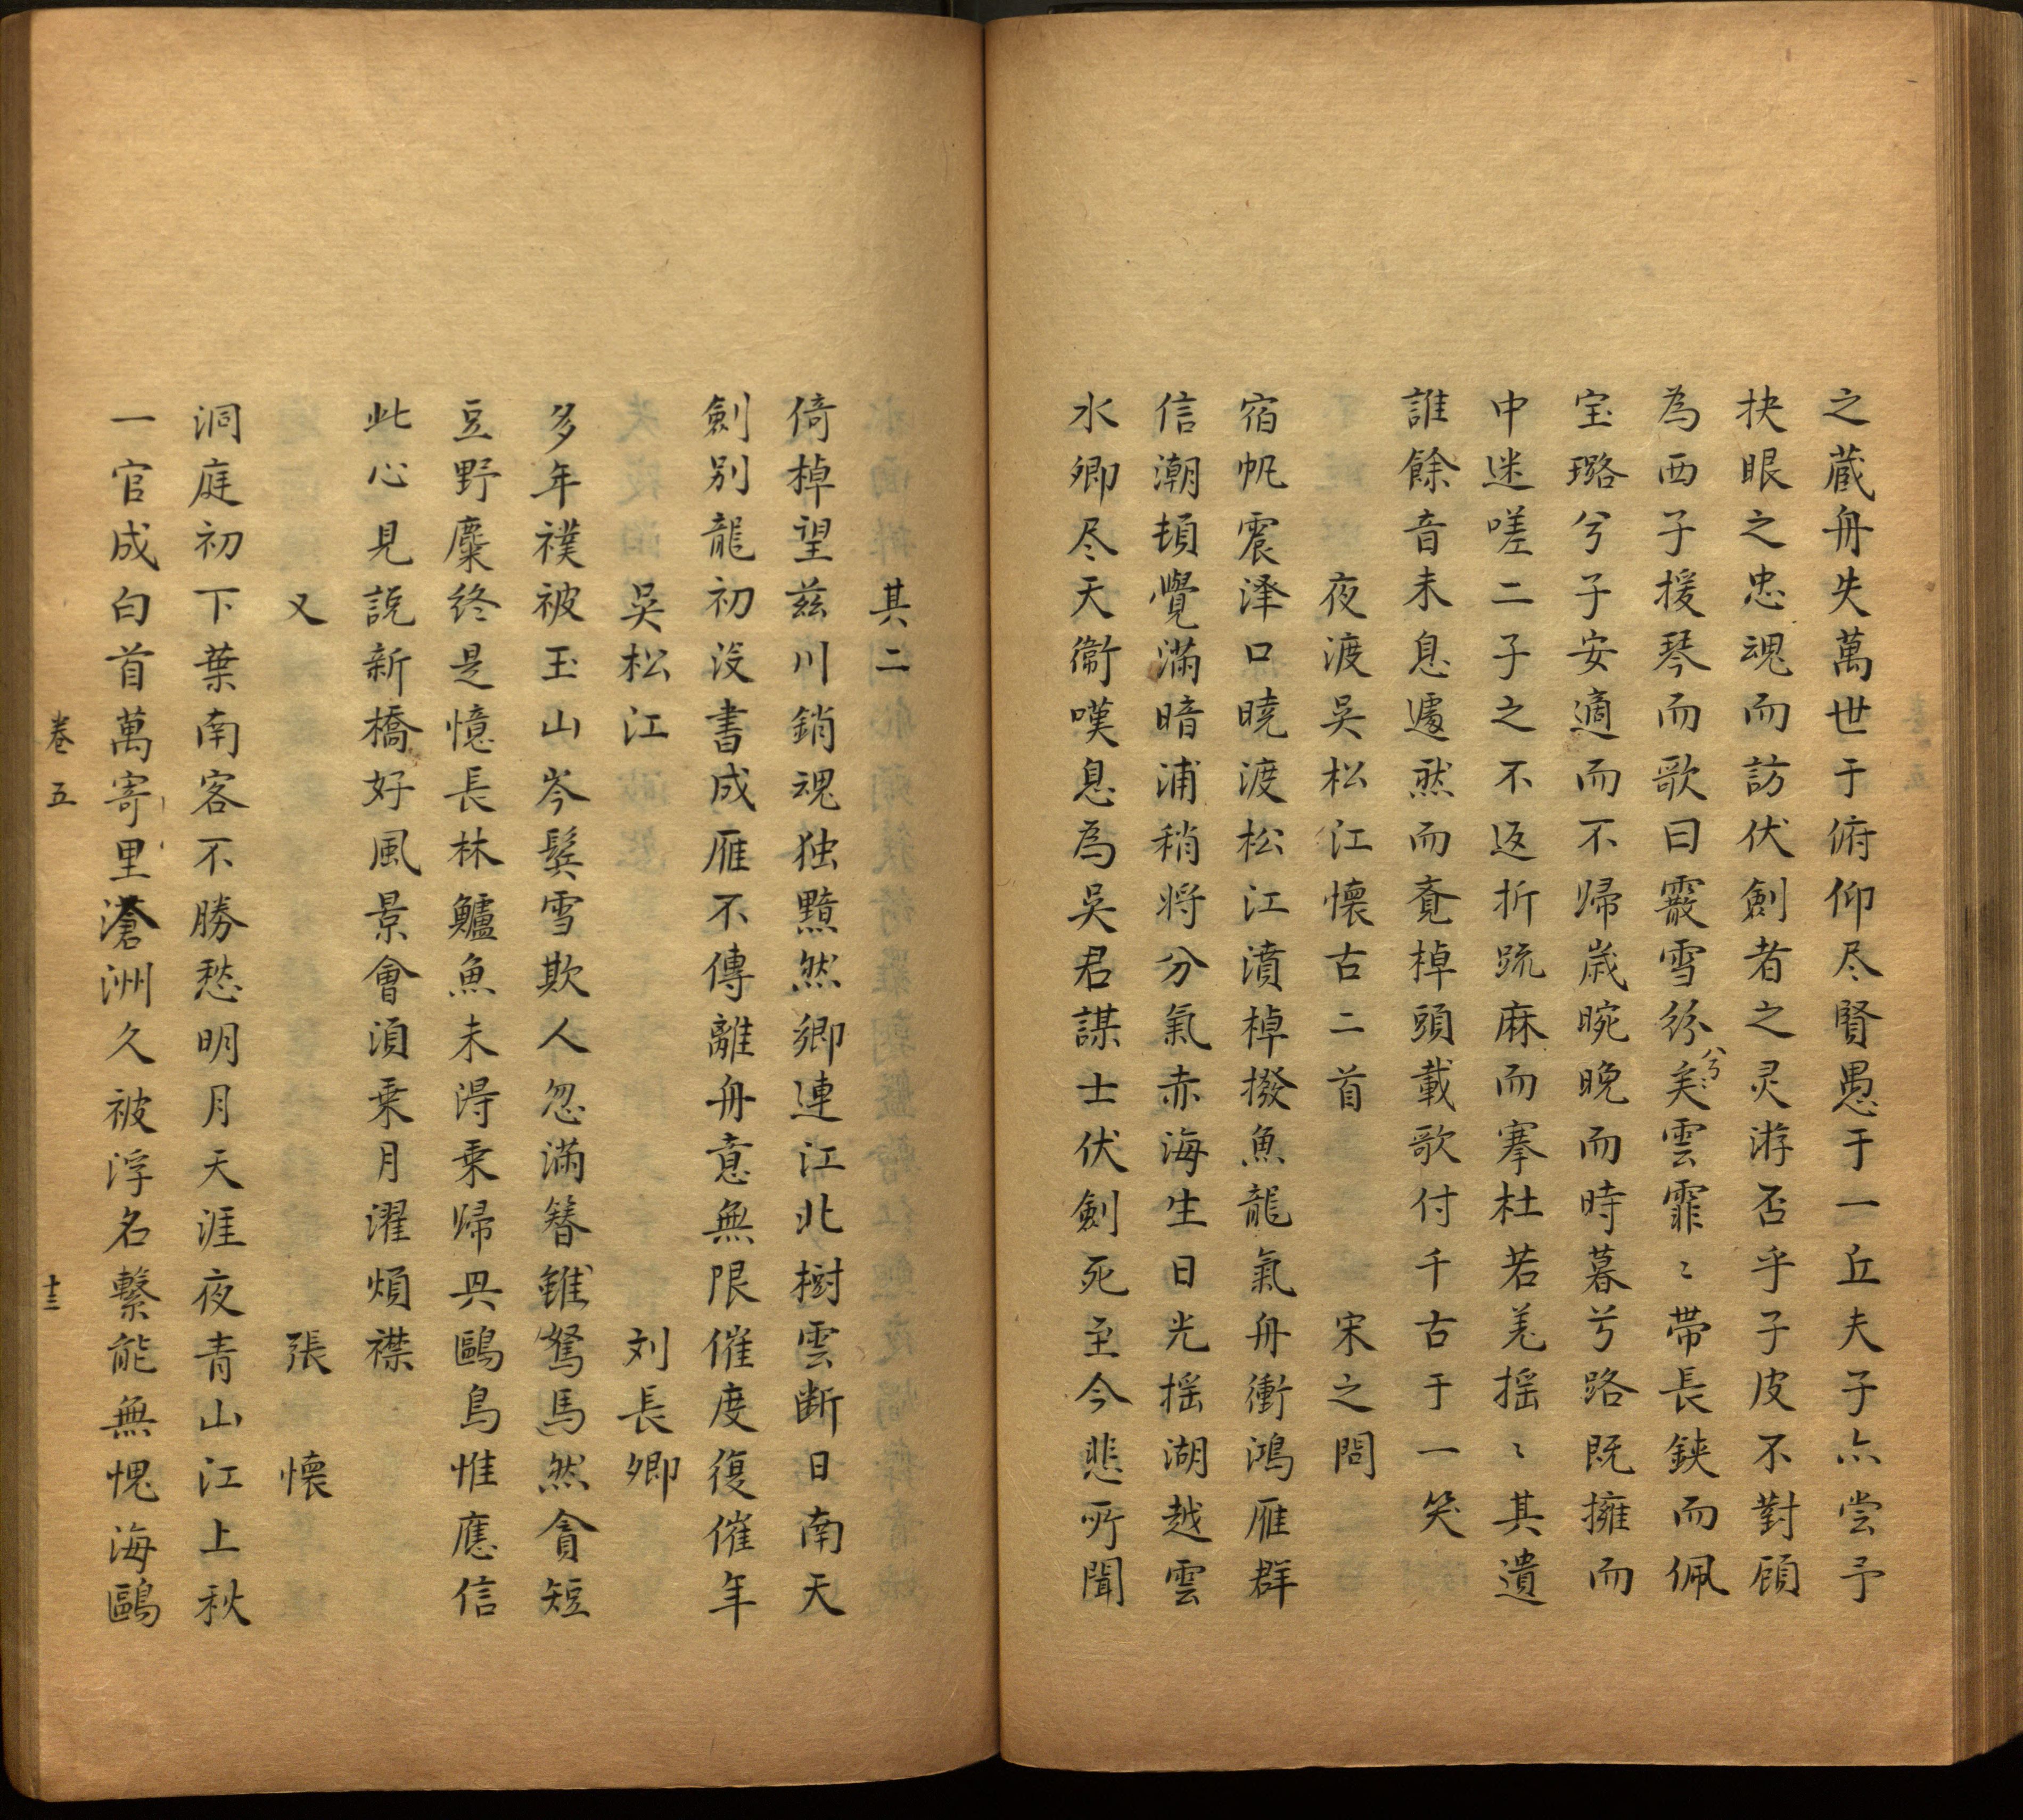 之蔵舟失萬世于俯仰尽賢愚于一丘夫子亦尝予
抉眼之忠魂而訪伏劍者之灵游否乎子皮不對顧
為西子援琴而歌曰霰雪紛矣兮雲霏〻帶長鋏而佩
宝璐兮子安適而不帰歳晼晚而時暮兮路既擁而
中迷嗟二子之不返折䟽麻而搴杜若羌摇〻其遺
誰餘音未息遽然而寤棹頭載歌付千古于一笑
夜渡吳松江懷古二首 宋之問
宿帆震泽口曉渡松江濆棹撥魚龍氣舟衝鴻雁群
信潮頓覺滿暗浦稍将分氣赤海生日光摇湖越雲
水卿尽天衞嘆息為吳君謀士伏劍死至今悲所聞
其二
倚棹望兹川銷魂独黯然卿連江北樹雲断日南天
劍别龍初没書成雁不傳離舟意無限催度復催年
吳松江 刘長卿
多年襆被玉山岑鬓雪欺人忽滿簮雖駑馬然貪短
豆野麋终是憶長林鱸魚未淂乗帰㒷鷗鳥惟應信
此心見説新橋好風景會湏乗月濯煩襟
又 張懷
洞庭初下葉南客不勝愁明月天涯夜青山江上秋
一官成白首萬寄里滄洲久被浮名繋能無愧海鷗
卷五 十三